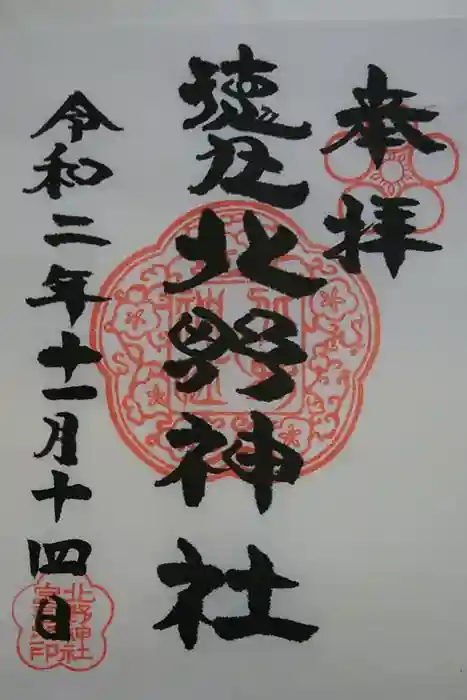 奉拝
徳丸北野神社
令和二年十一月十四日
北野神社